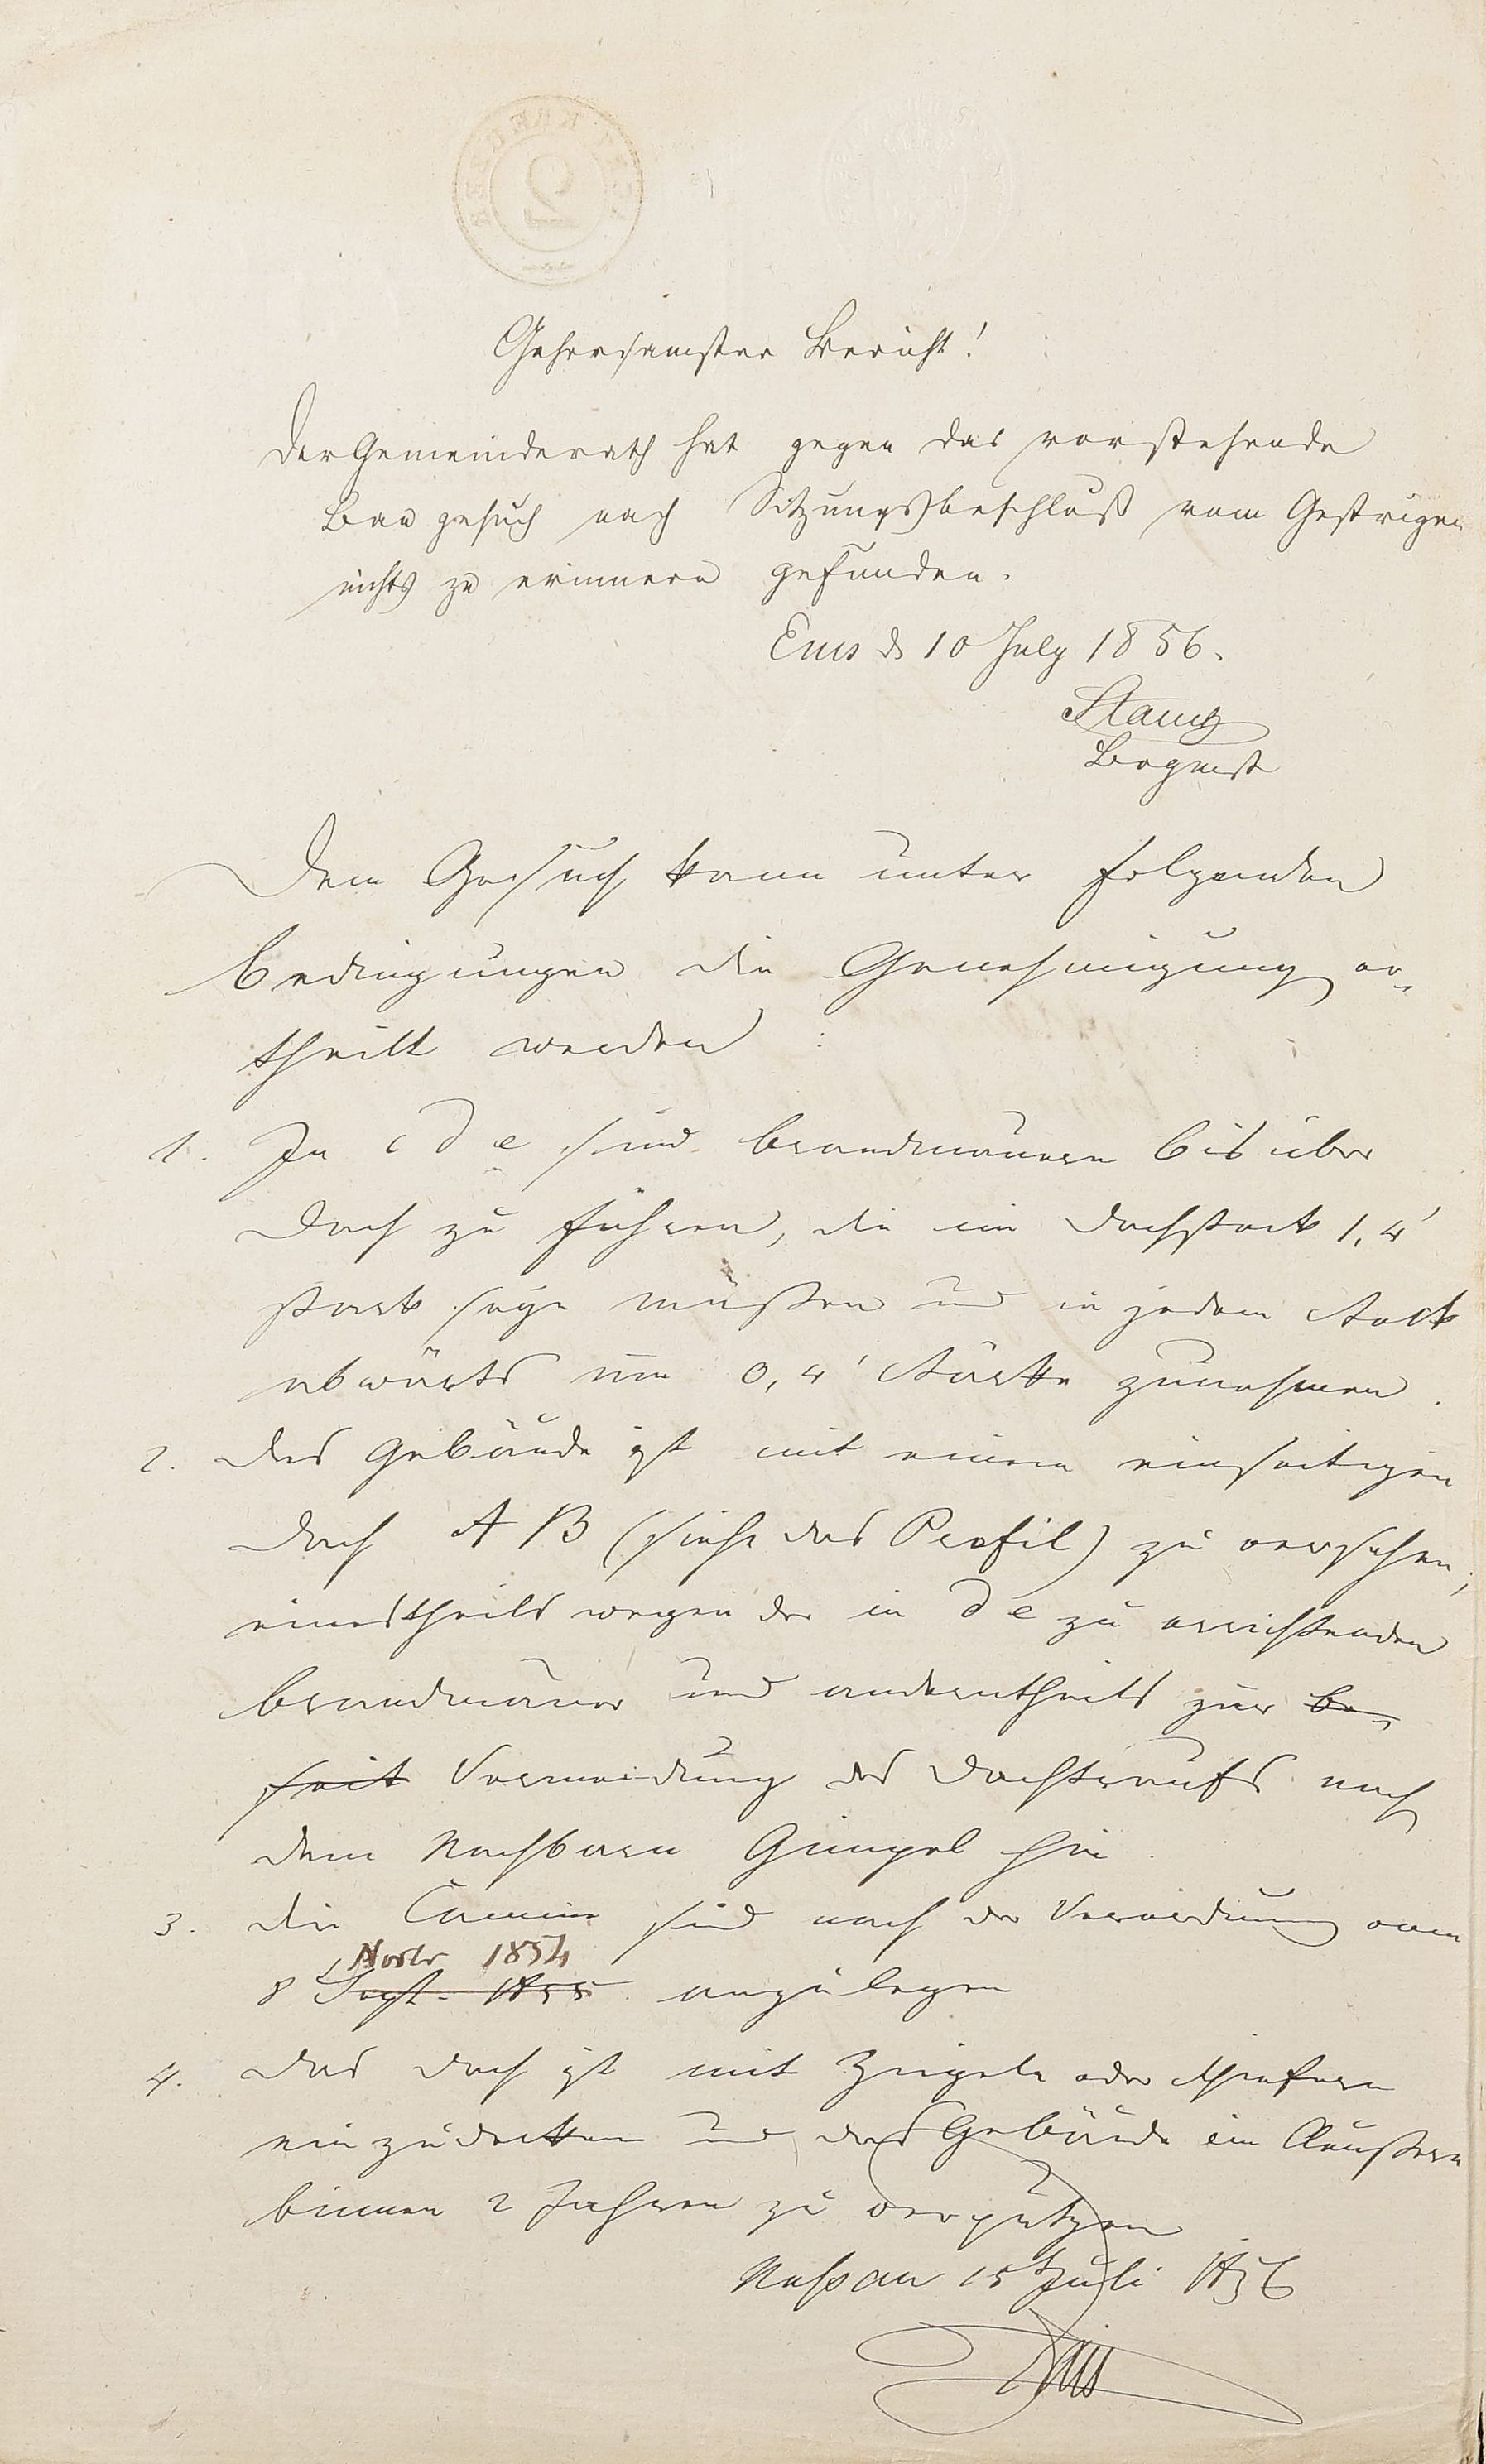 Gehorsamster Bericht!
Der Gemeinderath hat gegen das vorstehende
Baugesuch nach Sitzungsbeschluß vom Gestrigen
nichts zu erinnern gefunden.
Ems d 10 July 1856.
Dem Gesuch kann unter folgenden
Bedingungen die Genehmigung er-
theilt werden :
1. In c d e sind Brandmauern bis über
Dach zu führen, die im Dachstock 1,4'
stark seyn müßen und in jedem Stock
abwärts um 0,4' Stärke zunehmen.
2. Das Gebäude ist mit einem einseitigen
Dach A B (siehe das Profil) zu versehen,
einestheils wegen der in d e zu errichtenden
Brandmauer und anderntheils zur Be-
seit Vermeidung des Dachtraufs nach
dem Nachbarn Gimpel hin.
3. Die Camine sind nach der Verordnung vom
Novbr 1854
8 Sept. 1855 anzulegen
4. Das Dach ist mit Ziegeln oder Schiefern
einzudecken und das Gebäude im Aeußern
binnen 2 Jahren zu verputzen
Nassau 15 Juli 1856